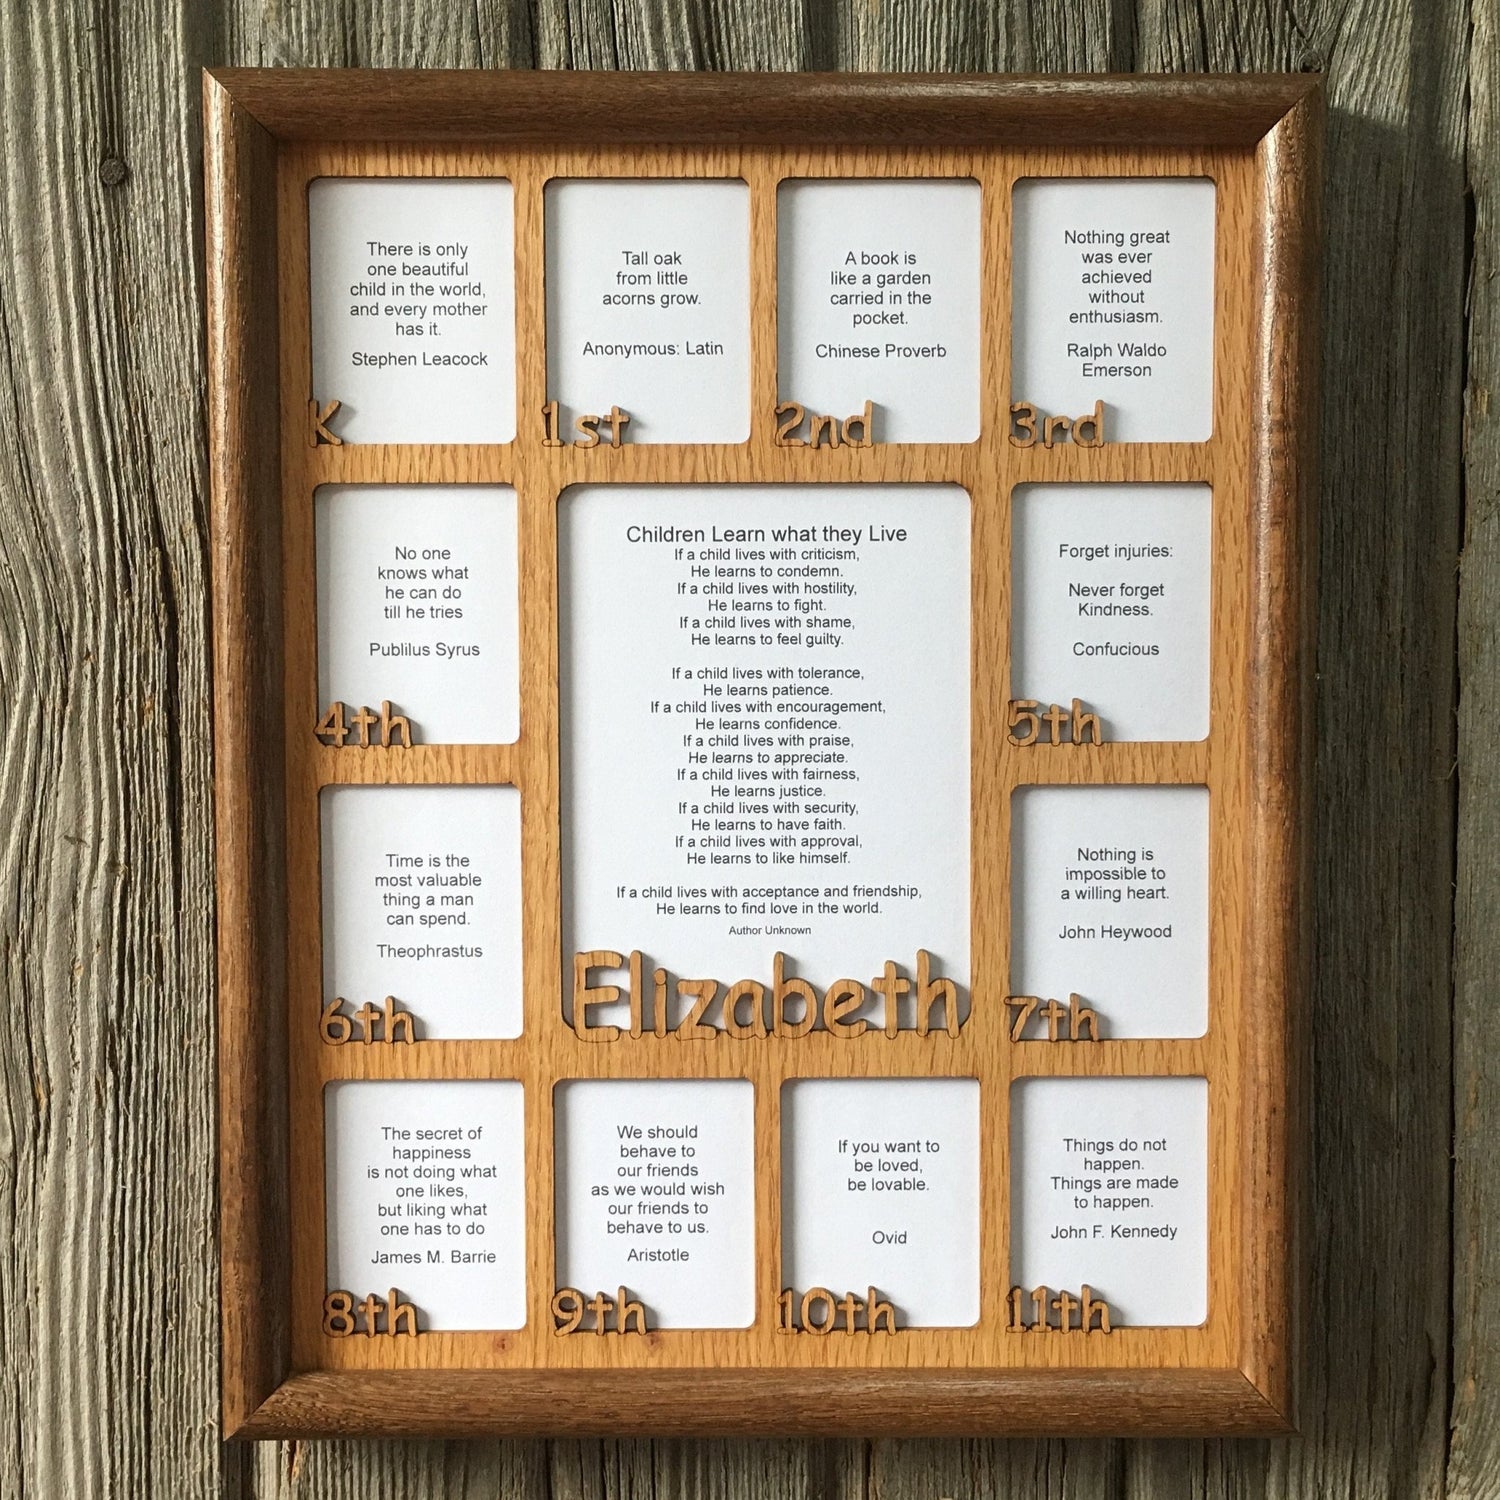 There is only
one beautiful
child in the world,
and every mother
has it.
Stephen Leacock
K
Tall oak
from little
acorns grow.
Anonymous: Latin
1st
A book is
like a garden
carried in the
pocket.
Chinese Proverb
2nd
Nothing great
was ever
achieved
without
enthusiasm.
Ralph Waldo
Emerson
3rd
No one
knows what
he can do
till he tries
Publilus Syrus
4th
Children Learn what they Live
If a child lives with criticism,
He learns to condemn.
If a child lives with hostility,
He learns to fight.
If a child lives with shame,
He learns to feel guilty.
If a child lives with tolerance,
He learns patience.
If a child lives with encouragement,
He learns confidence.
If a child lives with praise,
He learns to appreciate.
If a child lives with fairness,
He learns justice.
If a child lives with security,
He learns to have faith.
If a child lives with approval,
He learns to like himself.
If a child lives with acceptance and friendship,
He learns to find love in the world.
Author Unknown
Elizabeth
Forget injuries:
Never forget
Kindness.
Confucious
5th
Time is the
most valuable
thing a man
can spend.
Theophrastus
6th
Nothing is
impossible to
a willing heart.
John Heywood
7th
The secret of
happiness
is not doing what
one likes,
but liking what
one has to do
James M. Barrie
8th
We should
behave to
our friends
as we would wish
our friends to
behave to us.
Aristotle
9th
If you want to
be loved,
be lovable.
Ovid
10th
Things do not
happen.
Things are made
to happen.
John F. Kennedy
11th